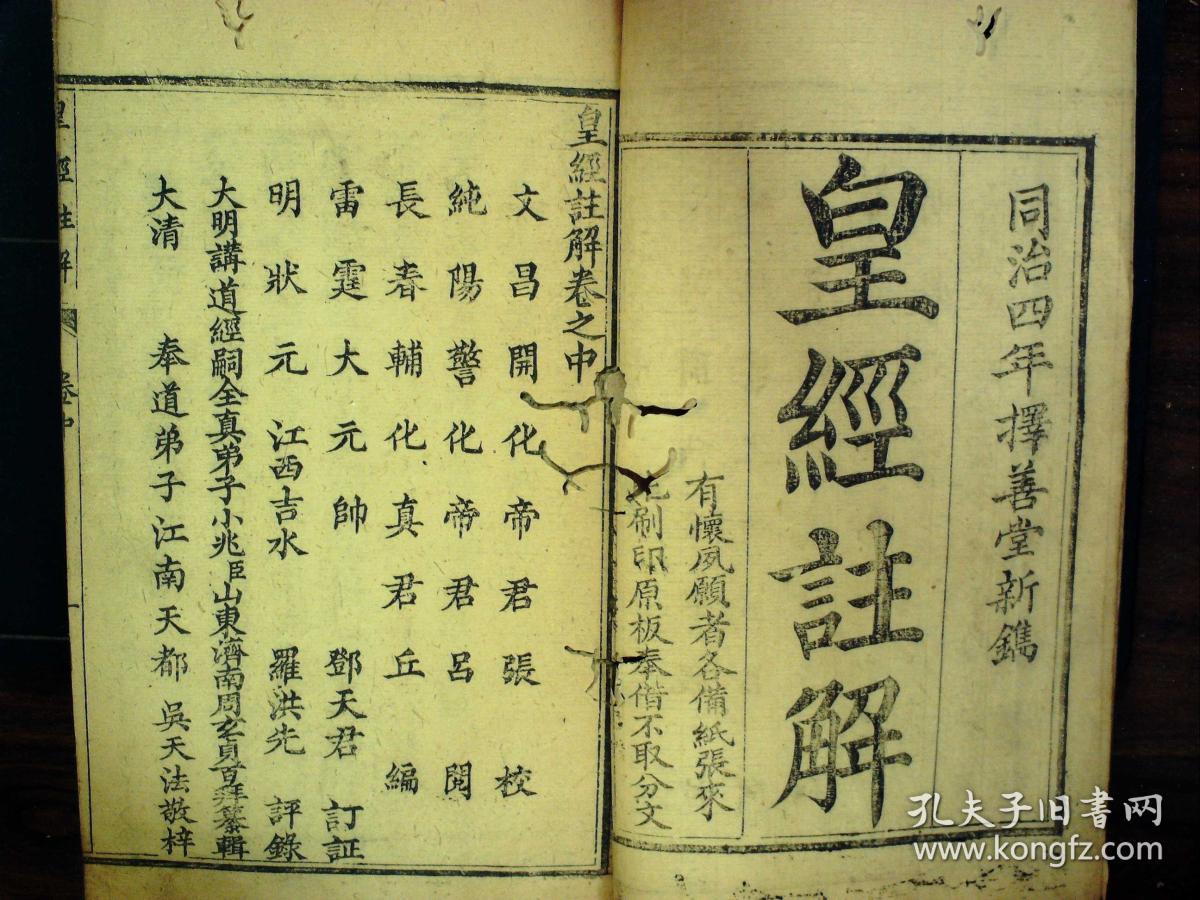 同治四年擇善堂新鐫
皇經註解
有懷夙願者各備紙張來
刷印原板奉借不取分文
皇經註解卷之中
文昌開化帝君張 校
純陽警化帝君呂 閱
長春輔化真君丘 編
雷霆大元帥 鄧天君 訂証
明狀元 江西吉水 羅洪先 評錄
大明講道經嗣全真弟子小兆臣山東濟南周玄貞百拜纂輯
大清 奉道弟子江南天都吳天法敬梓
皇經註解 卷中 一
孔夫子旧书网
www.kongfz.com